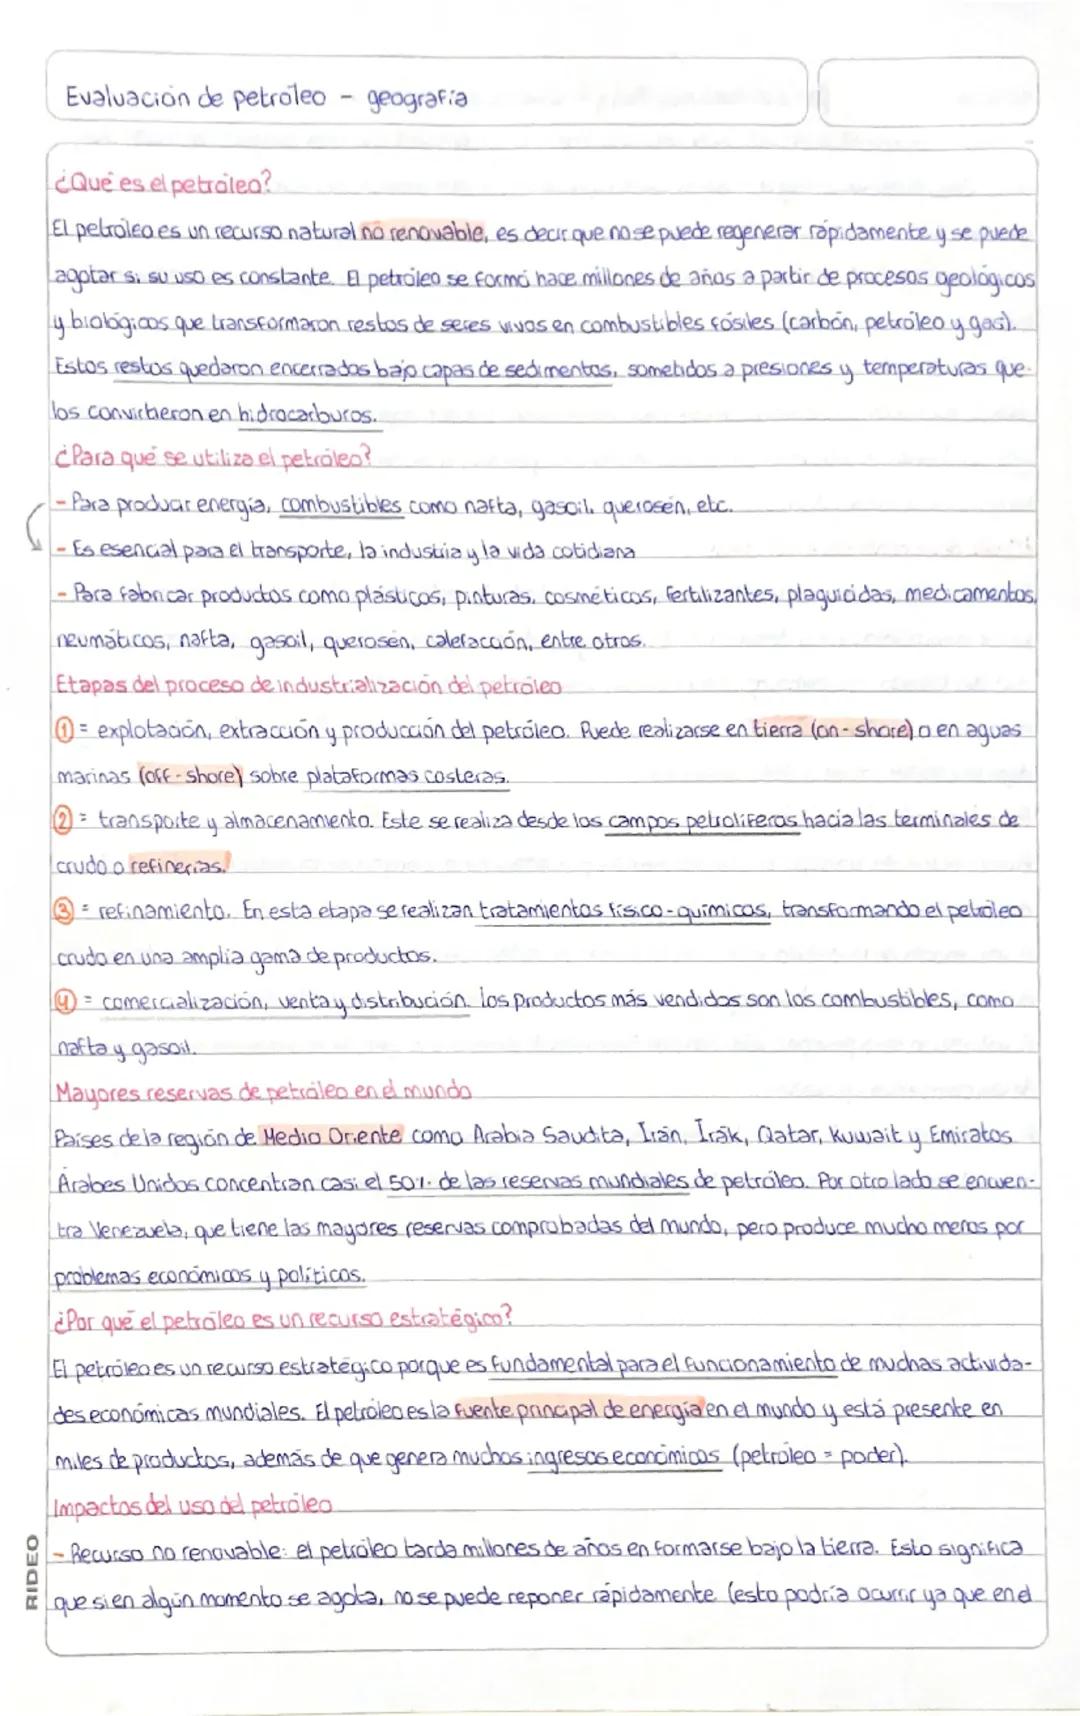 Evaluación de petróleo - geografía
¿Qué es el petróleo?
El petróleo es un recurso natural no renovable, es decir que no se puede regenerar rápidamente y se puede
agotar si su uso es constante. El petróleo se formó hace millones de años a partir de procesos geológicos
y biológicos que transformaron restos de seres vivos en combustibles fósiles (carbón, petróleo y gas).
Estos restos quedaron encerrados bajo capas de sedimentos, sometidos a presiones y temperaturas que
los convirtieron en hidrocarburos.
¿Para qué se utiliza el petróleo?
- Para producir energía, combustibles como nafta, gasoil, querosén, etc.
- Es esencial para el transporte, la industria y la vida cotidiana
- Para fabricar productos como plásticos, pinturas, cosméticos, fertilizantes, plaguicidas, medicamentos,
neumáticos, nafta, gasoil, querosén, calefacción, entre otros.
Etapas del proceso de industrialización del petróleo
① = explotación, extracción y producción del petróleo. Puede realizarse en tierra (on-shore) o en aguas
marinas (off-shore) sobre plataformas costeras.
② = transporte y almacenamiento. Este se realiza desde los campos petrolíferos hacia las terminales de
crudo o refinerías.
③ = refinamiento. En esta etapa se realizan tratamientos físico-químicos, transformando el petróleo
crudo en una amplia gama de productos.
④ = comercialización, venta y distribución. los productos más vendidos son los combustibles, como
nafta y gasoil.
Mayores reservas de petróleo en el mundo
Países de la región de Medio Oriente como Arabia Saudita, Irán, Irák, Qatar, Kuwait y Emiratos
Árabes Unidos concentran casi el 50% de las reservas mundiales de petróleo. Por otro lado se encuen-
tra Venezuela, que tiene las mayores reservas comprobadas del mundo, pero produce mucho menos por
problemas económicos y políticos.
¿Por qué el petróleo es un recurso estratégico?
El petróleo es un recurso estratégico porque es fundamental para el funcionamiento de muchas activida-
des económicas mundiales. El petróleo es la fuente principal de energía en el mundo y está presente en
miles de productos, además de que genera muchos ingresos económicos (petróleo = poder).
Impactos del uso del petróleo
- Recurso no renovable: el petróleo tarda millones de años en formarse bajo la tierra. Esto significa
que si en algún momento se agota, no se puede reponer rápidamente (esto podría ocurrir ya que en el
RIDEO